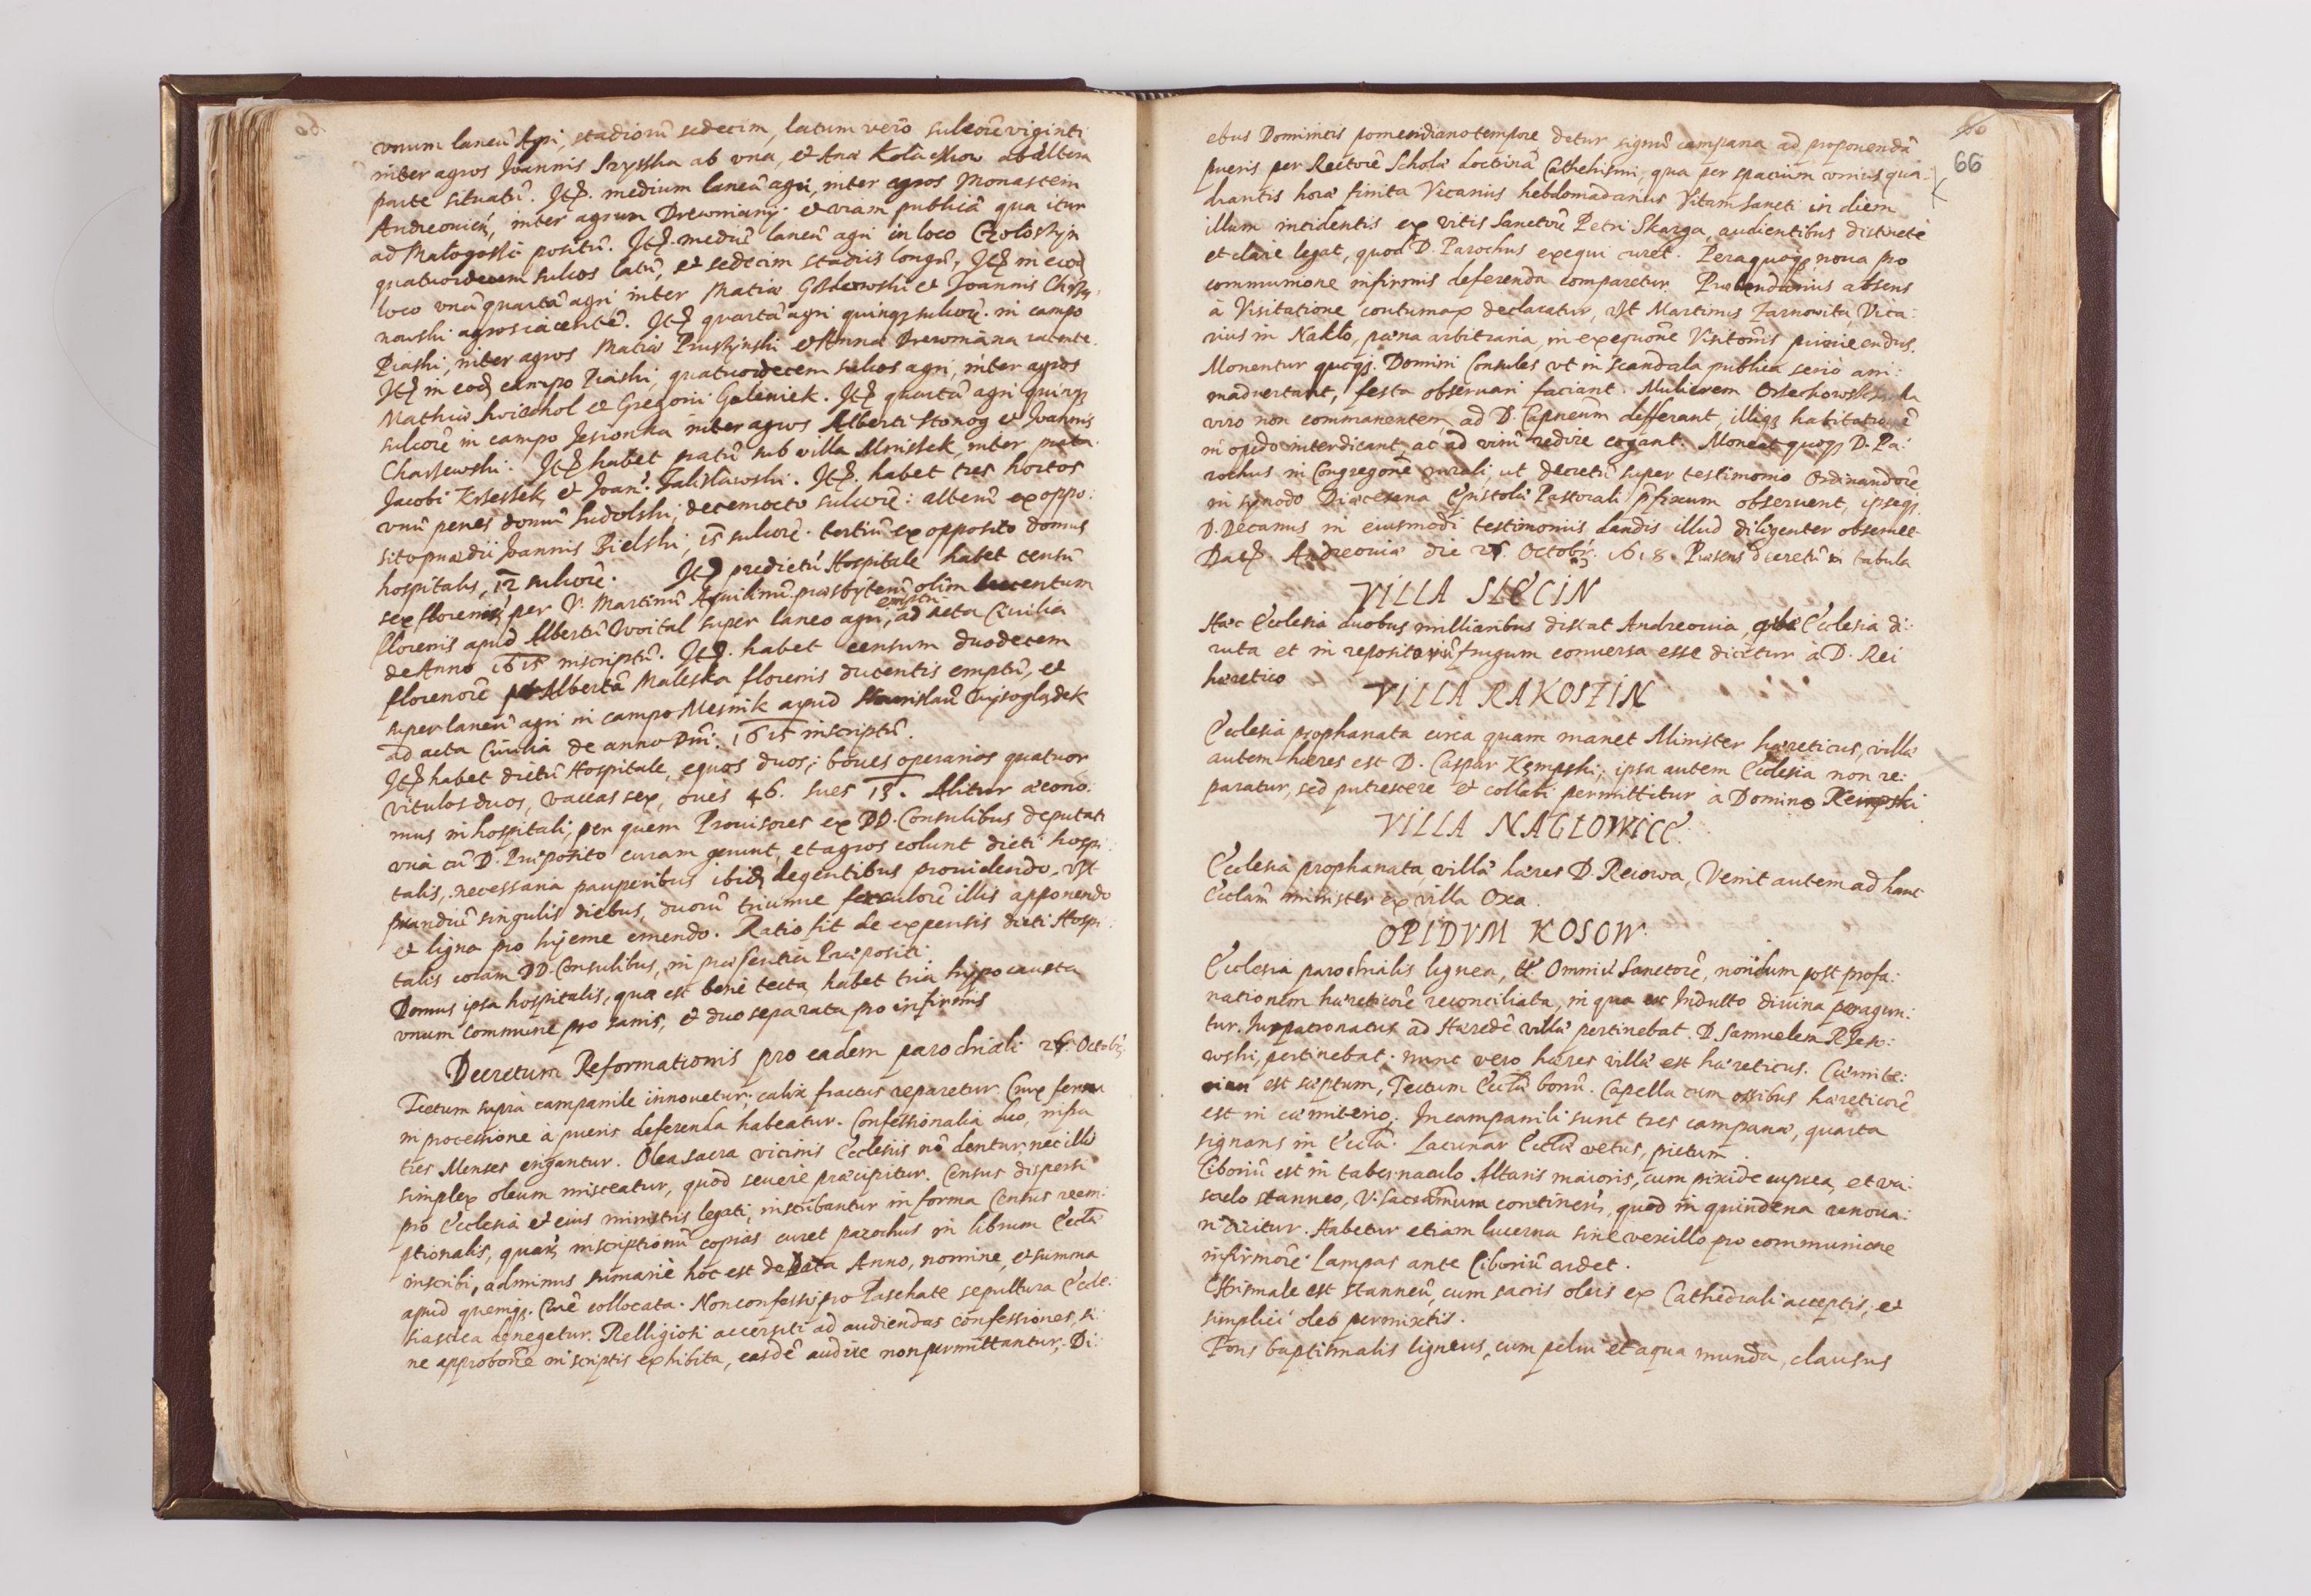 vnum laneũ Agri, stadiorũ sedecim, latum vero sulcorẽ viginti
inter agros Joannis Szyszka ab vna, et Anæ ab altera
parte situatũ. Itē. medium laneũ agri, inter agros Monasterii
Andreouień, inter agrum Drewniany et viam publicã qua itur
ad Małogoski positũ. Itē. mediũ laneũ agri in loco
quatuordecem sulcos latũ, et sedecim stadiis longũ, Itē in eodē
loco vnũ quartã agri inter Matiæ et Joannis
nowski agros iacentē. Itē quartã agri quinq; sulcorē. in campo
Piaski, inter agros Matiæ Pruszynski et Annæ Drewniana iacente.
Itē in eodē campo Piaski, quatuordecem sulcos agri, inter agros
Mathiæ et Gregorii Galeniek. Itē quartã agri quinq;
sulcorē in campo Jesionka inter agros Alberti Stonog et Joannis
Charzewski. Itē habet pratũ sub villa Mnissek, inter prata
Jacobi Krzessek, et Joan: Zalisławski. Itē. habet tres hortos
vnũ penes domũ Sudolski, decemocto sulcorē: alterũ ex oppo:
sito prædii Joannis Bielski, 15 sulcorē. tertiũ ex opposito domus
hospitalis, 12 sulcorē. Itē predictũ Hospitale habet censũ
sex florenis per V. Martinũ Aquilinũ presbyterũ olim centum
florenis apud Albertũ Woital super laneo agri, emptũ ad acta Ciuilia
de Anno 1615 inscriptũ. Itē. habet censum duodecem
florenorē Albertã Maleska florenis ducentis emptũ, et
super laneũ agri in campo Mesnik apud Stanislaũ Wysoglądek
ad acta Ciuilia de anno Dni: 1615 inscriptũ.
Itē habet dictũ Hospitale, equos duos; boues operarios quatuor
vitulos duos, vaccas sex, oues 46. sues 13. Alitur æcono:
mus in hospitali, per quem Prouisores ex DD. Consulibus deputati
vnà cũ D. Præposito curam gerunt, et agros colunt dicti hospi:
talis, necessaria pauperibus ibidē degentibus prouidendo. vz
prandiũ singulis diebus, duorũ triumue ferculorē illis apponendo
et ligna pro hyeme emendo. Ratio fit de expensis dicti Hospi:
talis coram DD. Consulibus, in præsentia Præpositi.
Domus ipsa hospitalis, quæ est benè tecta, habet tria hypocausta
vnum commune pro sanis, et duo separata pro infirmis
Decretum Reformationis pro eadem parochiali 25 Octobř:
Tectum supra campanile innouetur; calix fractus reparetur Crux ferrea
in processione à pueris deferenda habeatur. Confessionalia duo, infra
tres Menses erigantur. Olea sacra vicinis Ecclesiis nō dentur, nec illis
simplex oleum misceatur, quod seuerè præcipitur. Census dispersi
pro Ecclesia et eius ministris legati, inscribantur in forma Census reem:
ptionalis, quarũ inscriptionũ copias curet parochus in librum Ecclã
inscribi, adminus sumariè hoc est de Data Anno, nomine, et summa
apud quemq; Cuiē collocata. Nonconfessis pro Paschate sepultura Eccle:
siastica denegetur. Relligiosi accersiti ad audiendas confessiones, si:
ne approbonē in scriptis exhibita, easdē audire non permittantur, Di:
60
66
ebus Dominicis pomeridiano tempore detur signũ campanæ ad proponendã
pueris per Rectorē Scholæ doctrinã Cathechismi, qua per spacium vnius qua:
drantis horæ finita Vicarius hebdomadarius Vitam Sancti in diem
illum incidentis ex vitis Sanctorũ Petri Skarga, audientibus distinctè
et clare legat, quod D. Parochus exequi curet. Pera quoq; noua pro
communione infirmis deferenda comparetur. Præbendarius absens
à Visitatione contumax declaratur, vt Martinus Zarnowita, Vica:
rius in Nakło, pœna arbitraria, in exequonē Visitonis puniendus.
Monentur quoq; Domini Consules vt in scandala publica seriò ani:
maduertant, festa obseruari faciant. Mulierem
viro non commanentem, ad D. Capneum defferant, illiq; habitationē
in opido interdicant, ac ad virũ redire cogant. Moneat quoq; D. Pa:
rochus in Congregonē rurali, ut decretũ super testimonio Ordinandorē
in synodo Diæcesana Epistolæ Pastorali p̃fixum obseruent, ipseq;
D. Decanus in eiusmodi testimoniis dandis illud diligenter obseruet
Datē. Andreouiæ die 25. Octobř. 1618. Præsens decretũ in tabula
VILLA SLECIN
Hæc Ecclesia duobus milliaribus distat Andreouia, Ecclesia di:
ruta et in repositoriũ frugum conuersa esse dicitur à D. Rei
hæretico
VILLA RAKOSZIN
Ecclesia prophanata circa quam manet Minister hæreticus, villæ
autem hæres est D. Caspar Kempski; ipsa autem Ecclesia non re:
paratur, sed putrescere et collabi permittitur à Domino Kempski
VILLA NAGLOWICE
Ecclesia prophanata, villæ hæres D. Reiowa, Venit autem ad hanc
Ecclam minister ex villa Oxa.
OPIDVM KOSOW.
Ecclesia parochialis lignea, tt. Omniũ Sanctorē, nondum post profa:
nationem hæreticorē reconciliata, in qua ex Indulto diuina peragun:
tur. Juspatronatus ad Hæredē villæ pertinebat D. Samuelem
wski, pertinebat; nunc vero hæres villæ est hæreticus. Cæmite:
rium est sæptum, Tectum Ecclæ bonũ. Capella cum ossibus hæreticorē
est in cæmiterio. In campanili sunt tres campanæ, quarta
signans in Ecclã. Lacunar Ecclæ vetus, pictum
Ciboriũ est in tabernaculo Altaris maioris, cum pixide cuprea, et va:
sculo stanneo, V. Sacramum continens, quod in quindena renoua:
ri dicitur. Habetur etiam lucerna sine vexillo pro communione
infirmorē. Lampas ante Ciboriũ ardet.
Chrismale est stanneũ, cum sacris oleis ex Cathedrali acceptis, et
simplici oleo permixtis.
Fons baptismalis ligneus, cum pelui et aqua munda, clausus